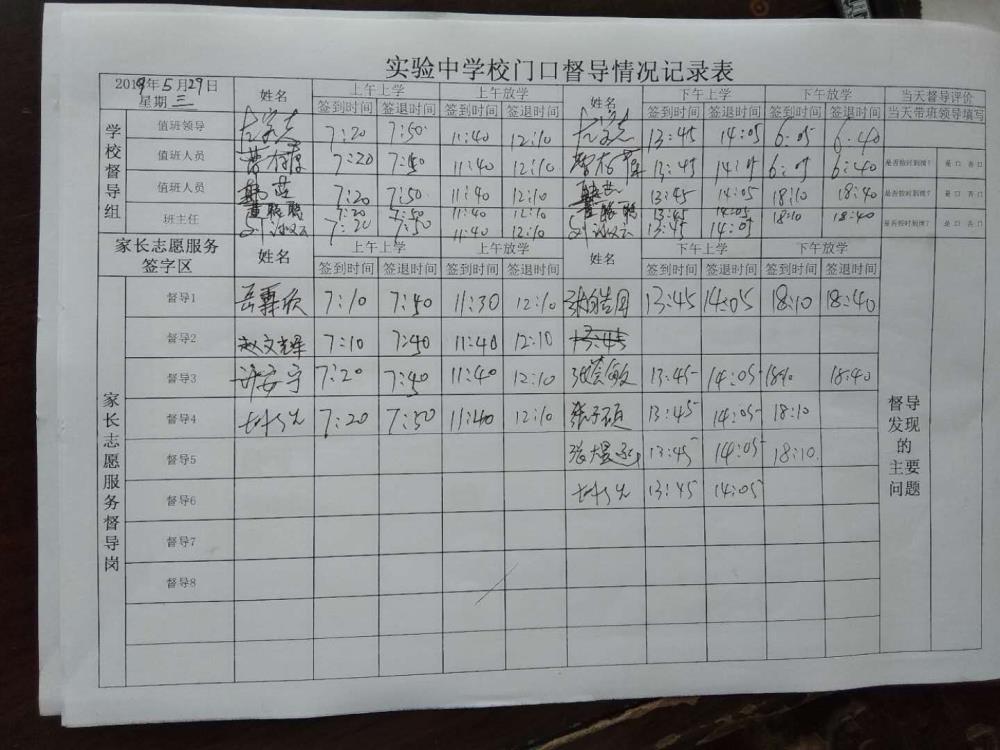 实验中学校门口督导情况记录表
2019年5月29日
星期三
姓名 上午上学 上午放学 姓名 下午上学 下午放学 当天督导评价
签到时间 签退时间 签到时间 签退时间 签到时间 签退时间 签到时间 签退时间 当天带班领导填写
学校督导组
值班领导 7:20 7:50 11:40 12:10 13:45 14:05 6:05 6:40
值班人员 7:20 7:50 11:40 12:10 13:45 14:05 6:05 6:40 是否按时到岗? 是口 否口
值班人员 7:20 7:50 11:40 12:10 13:45 14:05 18:10 18:40 是否按时到岗? 是口 否口
7:20 7:50 11:40 12:10 13:45 14:05 18:10 18:40
班主任 7:20 7:50 11:40 12:10 13:45 14:05 是否按时到岗? 是口 否口
家长志愿服务签字区 姓名 上午上学 上午放学 姓名 下午上学 下午放学
签到时间 签退时间 签到时间 签退时间 签到时间 签退时间 签到时间 签退时间
家长志愿服务督导岗
督导1 7:10 7:40 11:30 12:10 13:45 14:05 18:10 18:40
督导2 赵文辉 7:10 7:40 11:40 12:10
督导3 许安宁 7:20 7:40 11:40 12:10 13:45 14:05 1810 18:40
督导4 7:20 7:50 11:40 12:10 张子硕 13:45 14:05 18:10
督导5 13:45 14:05 18:10.
督导6 13:45 14:05
督导7
督导8
督导发现的主要问题